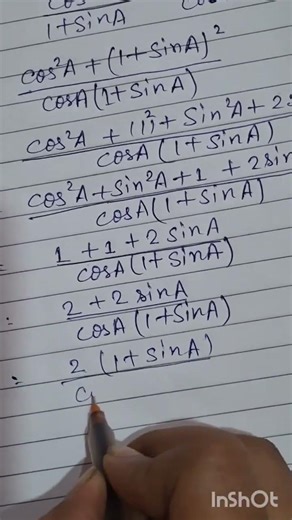 1+sinA
cos²A + (1+sinA)²
cosA(1+sinA)
cos²A + (1)² + sin²A + 2
cosA (1+sinA)
cos²A+sin²A+1 +2sin
cosA(1+sinA)
1 + 1 + 2 sinA
cosA(1+sinA)
2 + 2 sinA
cosA (1+sinA)
= 2 (1+sinA)
c
InShOt